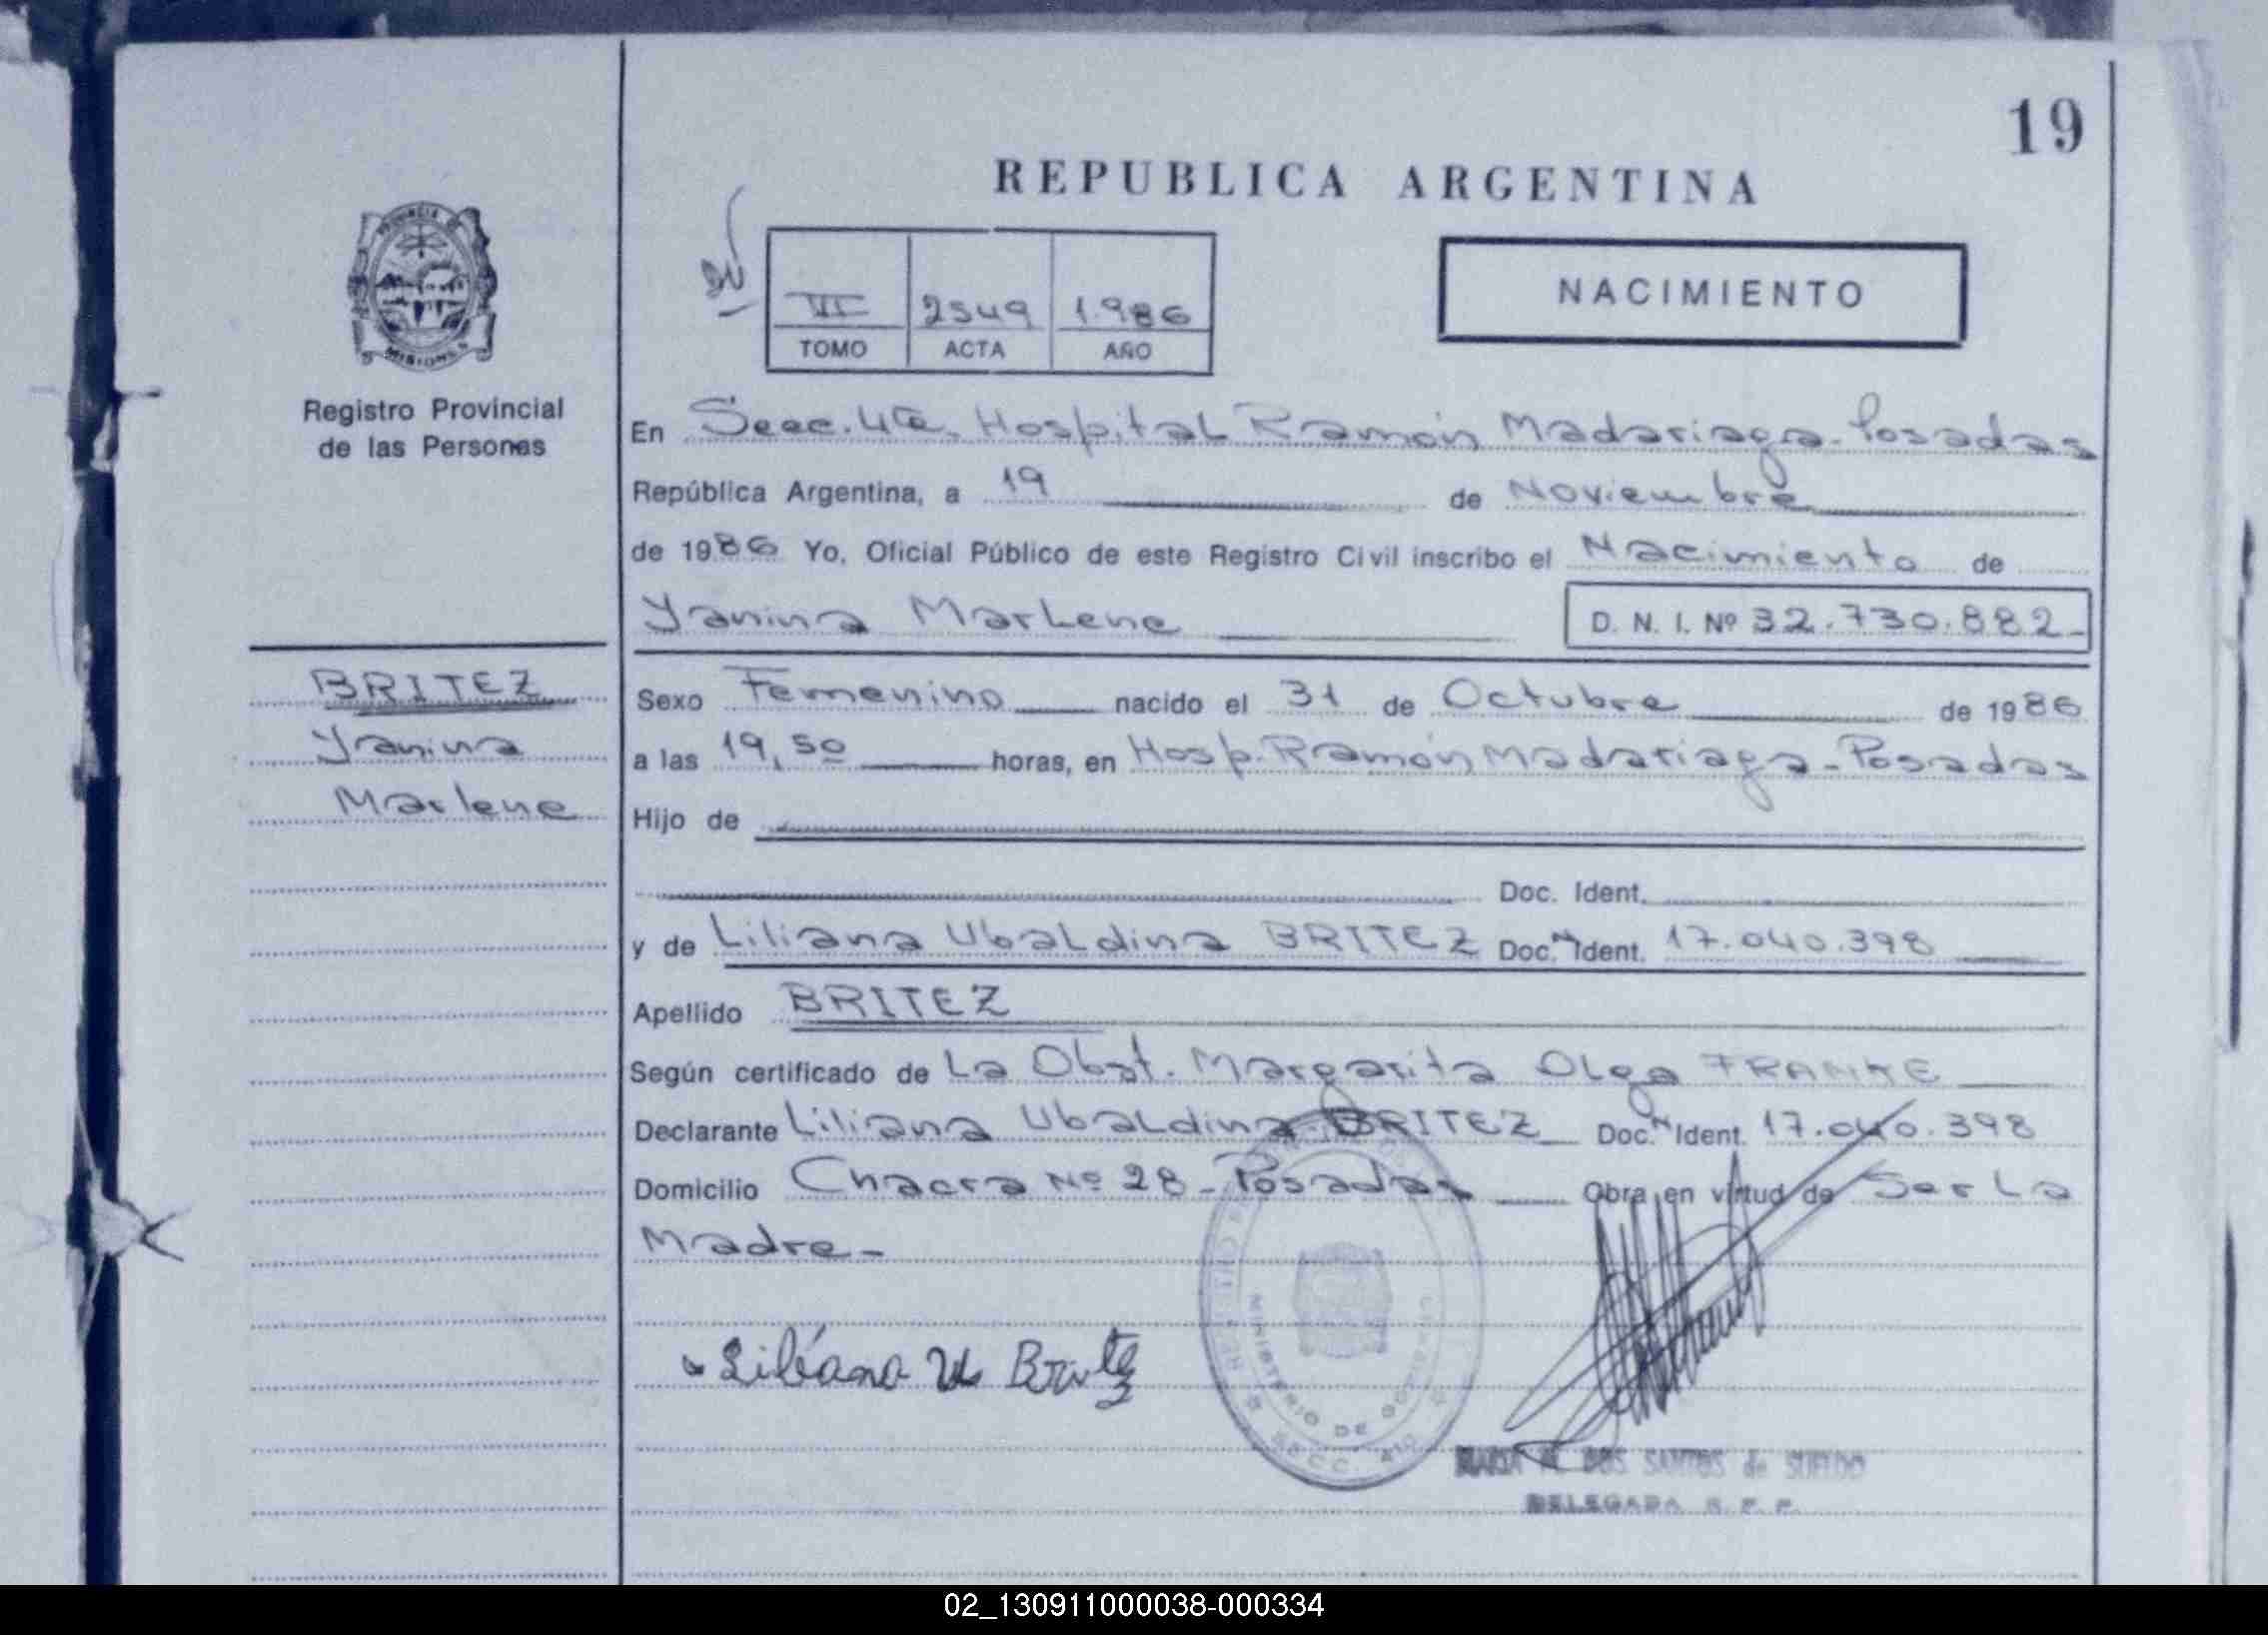 19
REPUBLICA ARGENTINA
PROVINCIA DE
MISIONES
VII 2549 1.986
TOMO ACTA AÑO
NACIMIENTO
Registro Provincial
de las Personas
En Secc. 4ta. Hospital Ramón Madariaga - Posadas
República Argentina, a 19 de Noviembre
de 1986 Yo, Oficial Público de este Registro Civil inscribo el Nacimiento de
Yanina Marlene D. N. I. Nº 32.730.882-
BRITEZ
Yanina
Marlene
Sexo Femenino nacido el 31 de Octubre de 1986
a las 19,50 horas, en Hosp. Ramón Madariaga - Posadas
Hijo de
Doc. Ident.
y de Liliana Ubaldina BRITEZ Doc. Ident. 17.040.398
Apellido BRITEZ
Según certificado de La Obst. Margarita Olga FRANKE
Declarante Liliana Ubaldina BRITEZ Doc. Ident. 17.040.398
Domicilio Chacra Nº 28 - Posadas Obra en virtud de Ser La
Madre -
Liliana U Britez
MINISTERIO DE GOBIERNO
SECC. 4ta
DOS SANTOS de SUELDO
DELEGADA R. P. P.
02_130911000038-000334